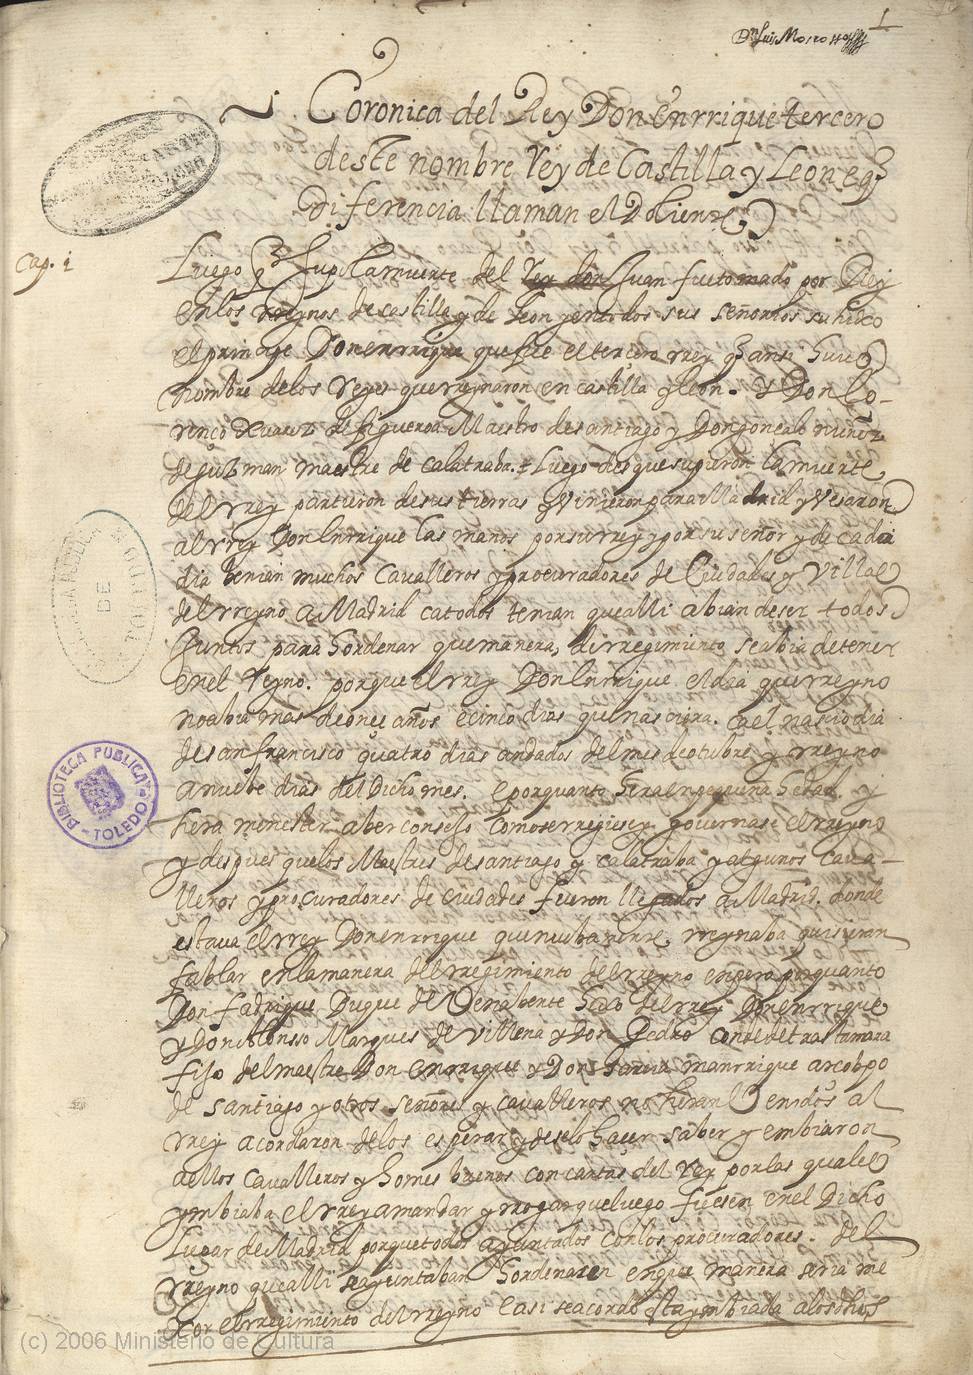 1
Dn Luis Moslo
Coronica del Rey Don Enrrique tercero
deste nombre Rey de Castilla y Leon e q
Diferencia llaman el Doliente
Cap. 1
Luego q supo la muerte del Rey don Juan fue tomado por Rey
en los rreynos de castilla y de Leon y en todos sus señorios su hixo
el prinçipe Don enrrique que fue el tercero rrey q ansi huvo
nombre de los Reyes que rreynaron en castilla y leon. y Don Lo-
renço Xuarez de figueroa Maestro de santiago y Don gonçalo nuñez
de guzman maestre de calatraba. Luego desque supieron la muerte
del rrey partieron de sus tierras y Vinieron para Madrid y Vesaron
al rrey Don Enrrique las manos por su rrey y por su señor y de cada
dia benian muchos cavalleros y procuradores de Ciudades y Villas
del rreyno a Madrid ca todos tenian que alli abian de ser todos
Juntos para hordenar que manera, de rregimiento se abia de tener
en el Reyno. porque el rrey Don Enrrique el dia que rreyno
no abia mas de onçe años e cinco dias que nasciera. ca el nascio dia
de san francisco quatro dias andados del mes de otubre y rreyno
a nuebe dias del Dicho mes. e por quanto hera en pequeña hedad. y
hera menester aber consejo como se rregiese y governase el rreyno
y despues que los Maestres de santiago y calatraba y algunos cava-
lleros y procuradores de ciudades fueron llegados a Madrid. donde
estava el rrey Don enrrique que nuebamente rreynaba quisieran
fablar en la manera del rregimiento del rreyno enpero por quanto
Don fadrique Duque de Benabente hixo del rrey Don enrrique
y Don Alonsso Marques de Villena y Don Pedro Conde de trastamara
fijo del maestre Don enrrique y Don Garcia manrrique arcobpo
de santiago y otros señores y cavalleros no heran Benidos al
rrey acordaron de los esperar y de selo haçer saber y embiaron
a ellos cavalleros y homes buenos con cartas del Rey por las quales
ymbiaba el rrey a mandar y rrogar que luego fuesen en el Dicho
Lugar de Madrid porque todos ayuntados con los procuradores. del
rreyno que alli se ayuntaban hordenasen en que manera seria me
jor el rregimiento del rreyno e asi se acordo esta ymbiada a los dhos
BIBLIOTECA PUBLICA
TOLEDO
DE
(c) 2006 Ministerio de Cultura